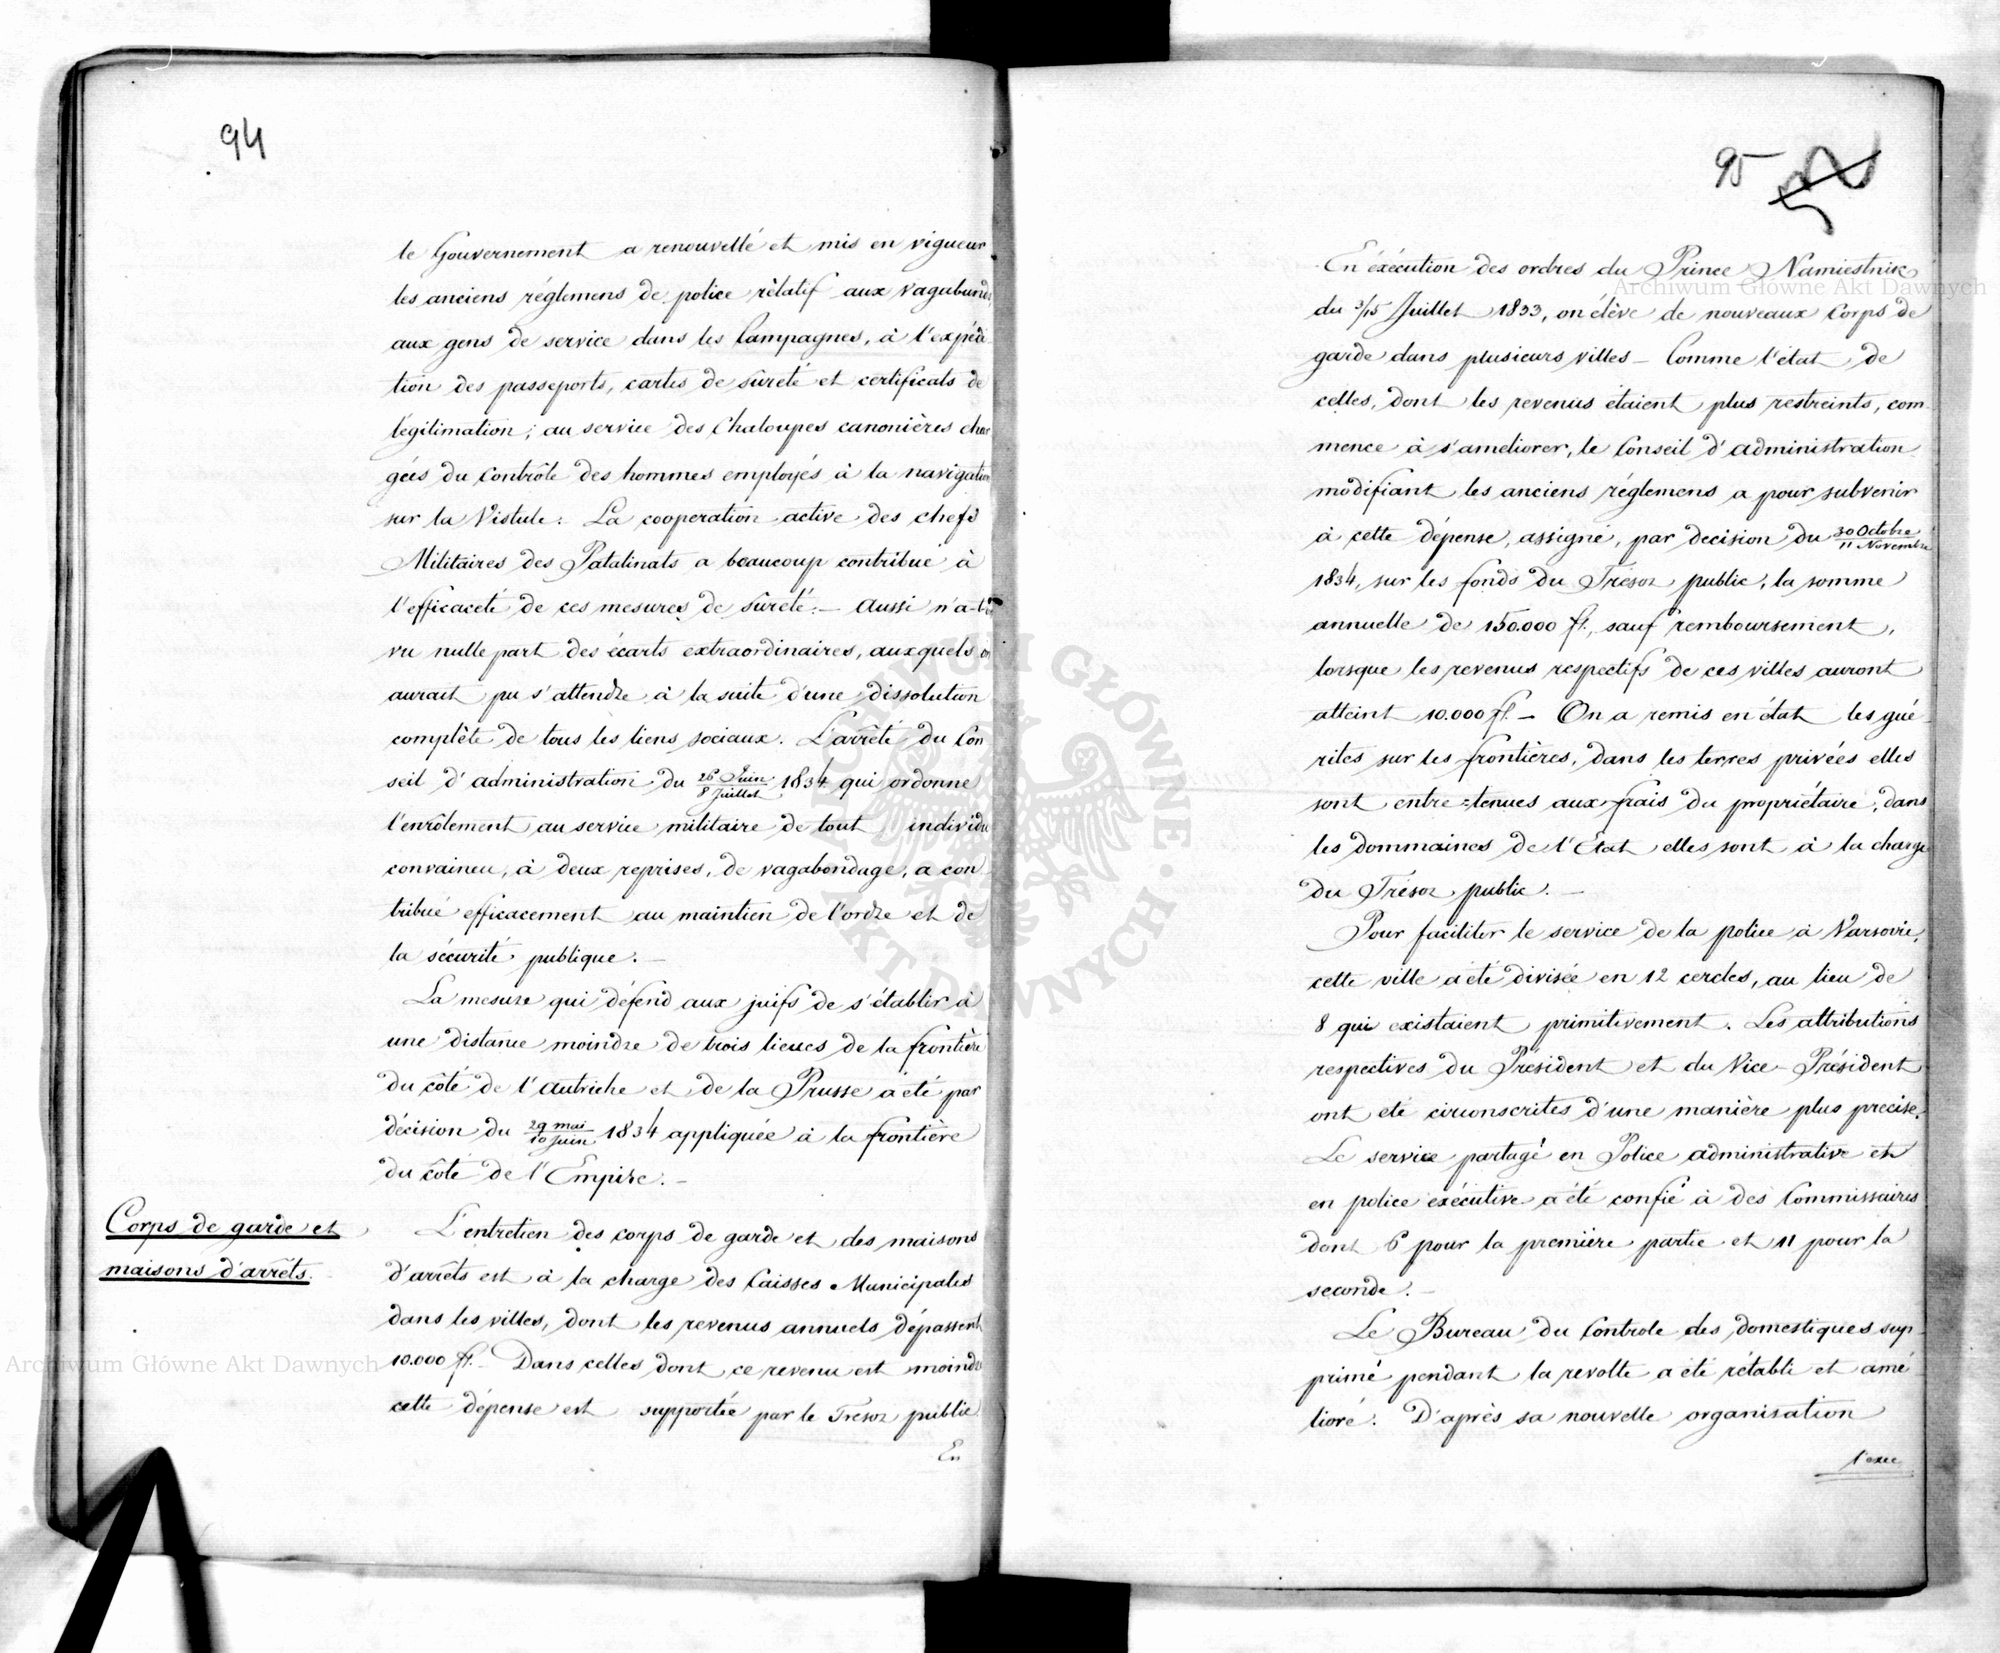 94
le Gouvernement a renouvellé et mis en vigueur
les anciens réglemens de police rélatif aux vagabunds
aux gens de service dans les Campagnes, à l'expédi
tion des passeports, cartes de sûreté et certificats de
légitimation; au service des Chaloupes canonières char
gées du Contrôle des hommes employés à la navigation
sur la Vistule. La cooperation active des chefs
Militaires des Palatinats a beaucoup contribué à
l'efficaceté de ces mesures de sûreté. — Aussi n'a-t-on
vu nulle part des écarts extraordinaires, auxquels on
aurait pu s'attendre à la suite d'une dissolution
complète de tous les liens sociaux. L'arrêté du Con
seil d'administration du 26 Juin/8 Juillet 1834 qui ordonne
l'enrôlement au service militaire de tout individu
convaincu, à deux reprises, de vagabondage, a con
tribué efficacement au maintien de l'ordre et de
la sécurité publique. —
La mesure qui défend aux juifs de s'établir à
une distance moindre de trois lieues de la frontière
du côté de l'Autriche et de la Prusse a été par
décision du 29 mai/10 Juin 1834 appliquée à la frontière
du côté de l'Empire. —
Corps de garde et
maisons d'arrêts.
L'entretien des corps de garde et des maisons
d'arrêts est à la charge des Caisses Municipales
dans les villes, dont les revenus annuels dépassent
10.000 fl. — Dans celles dont ce revenu est moindre
cette dépense est supportée par le Trésor public
En
95
En éxécution des ordres du Prince Namiestnik
du 3/15 Juillet 1833, on élève de nouveaux Corps de
garde dans plusieurs villes — Comme l'état de
celles, dont les revenus étaient plus restreints, com
mence à s'améliorer, le Conseil d'administration
modifiant les anciens réglemens a pour subvenir
à cette dépense, assigné, par decision du 30 Octobre/11 Novembre
1834, sur les fonds du Trésor public, la somme
annuelle de 150.000 fl., sauf remboursement,
lorsque les revenus respectifs de ces villes auront
atteint 10.000 fl. — On a remis en état les gué
rites sur les frontières, dans les terres privées elles
sont entre=tenues aux frais du propriétaire; dans
les dommaines de l'Etat elles sont à la charge
du Trésor public. —
Pour faciliter le service de la police à Varsovie,
cette ville a été divisée en 12 cercles, au lieu de
8 qui existaient primitivement. Les attributions
respectives du Président et du Vice-Président
ont été circonscrites d'une manière plus precise.
Le service partagé en Police administrative et
en police exécutive a été confié à des Commissaires
dont 6 pour la première partie et 11 pour la
seconde. —
Le Bureau du Controle des domestiques sup
primé pendant la revolte a été rétabli et amé
lioré. D'après sa nouvelle organisation
l'exec
Archiwum Główne Akt Dawnych
Archiwum Główne Akt Dawnych
ARCHIWUM GŁÓWNE AKT DAWNYCH